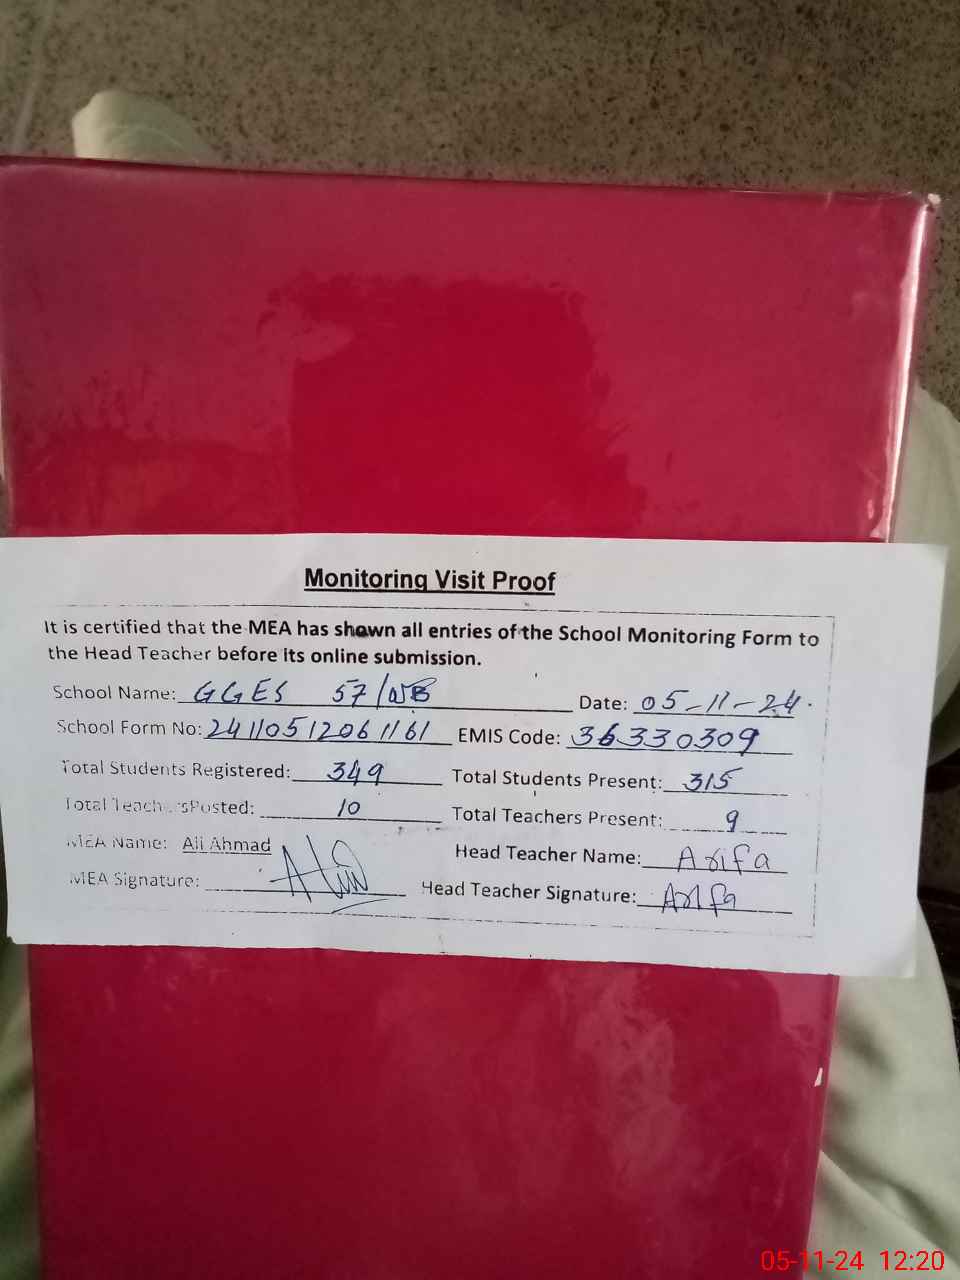 Monitoring Visit Proof
It is certified that the MEA has shown all entries of the School Monitoring Form to
the Head Teacher before its online submission.
School Name: GGES 57/WB Date: 05-11-24.
School Form No: 24110512061161 EMIS Code: 36330309
Total Students Registered: 349 Total Students Present: 315
Total TeachersPosted: 10 Total Teachers Present: 9
MEA Name: Ali Ahmad Head Teacher Name: Arifa
MEA Signature: Head Teacher Signature: Arifa
05-11-24 12:20